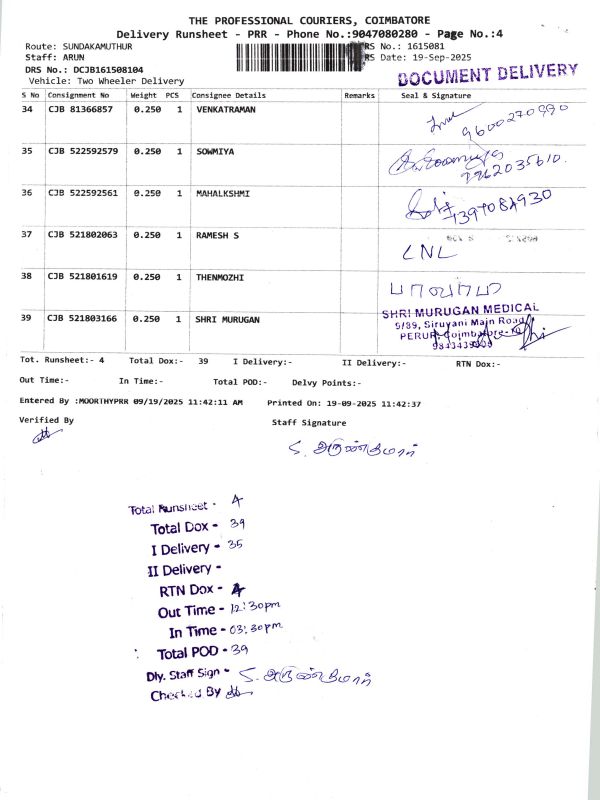 THE PROFESSIONAL COURIERS, COIMBATORE
Delivery Runsheet - PRR - Phone No.:9047080280 - Page No.:4
Route: SUNDAKAMUTHUR RS No.: 1615081
Staff: ARUN RS Date: 19-Sep-2025
DRS No.: DCJB161508104
Vehicle: Two Wheeler Delivery
DOCUMENT DELIVERY
S No Consignment No Weight PCS Consignee Details Remarks Seal & Signature
34 CJB 81366857 0.250 1 VENKATRAMAN
9600270990
35 CJB 522592579 0.250 1 SOWMIYA
36 CJB 522592561 0.250 1 MAHALKSHMI
37 CJB 521802063 0.250 1 RAMESH S
LNL
38 CJB 521801619 0.250 1 THENMOZHI
39 CJB 521803166 0.250 1 SHRI MURUGAN
SHRI MURUGAN MEDICAL
5/89, Siruvani Main Road
PERUR, Coimbatore-
Tot. Runsheet:- 4 Total Dox:- 39 I Delivery:- II Delivery:- RTN Dox:-
Out Time:- In Time:- Total POD:- Delvy Points:-
Entered By :MOORTHYPRR 09/19/2025 11:42:11 AM Printed On: 19-09-2025 11:42:37
Verified By Staff Signature
S. அருண்குமார்
Total Runsheet - 4
Total Dox - 39
I Delivery - 35
II Delivery -
RTN Dox - 4
Out Time - 12:30pm
In Time - 03:30pm
Total POD - 39
Dly. Staff Sign - S. அருண்குமார்
Checked By